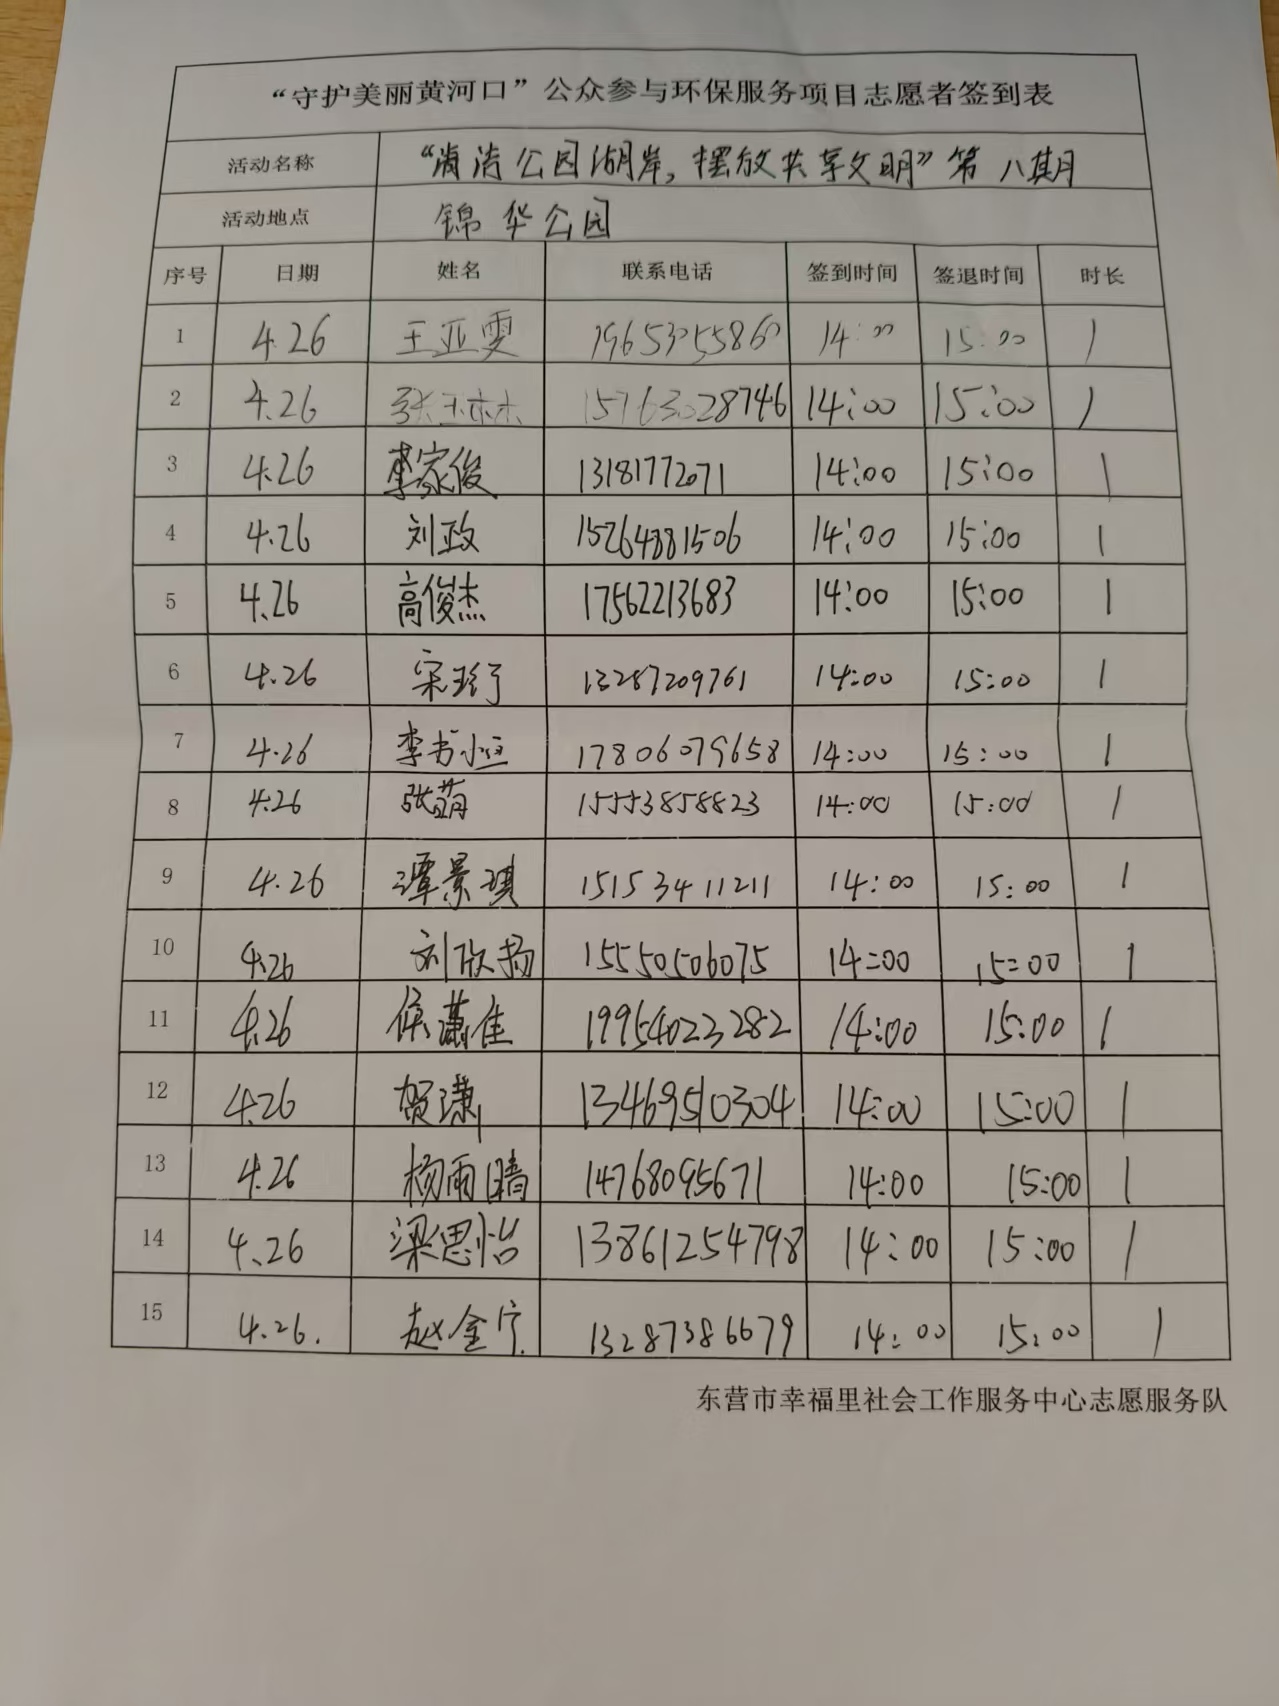 “守护美丽黄河口”公众参与环保服务项目志愿者签到表
活动名称 “清洁公园湖岸，摆放共享文明”第八期
活动地点 锦华公园
序号 日期 姓名 联系电话 签到时间 签退时间 时长
1 4.26 王亚雯 19653055860 14:00 15:00 1
2 4.26 张玉林 15763028746 14:00 15:00 1
3 4.26 李家俊 13181772071 14:00 15:00 1
4 4.26 刘政 15264881506 14:00 15:00 1
5 4.26 高俊杰 17562213683 14:00 15:00 1
6 4.26 宋 13287209761 14:00 15:00 1
7 4.26 李书恒 17806079658 14:00 15:00 1
8 4.26 张萌 15553858823 14:00 15:00 1
9 4.26 谭景琪 15153411211 14:00 15:00 1
10 4.26 刘欣扬 15550506075 14:00 15:00 1
11 4.26 侯萧佳 19954023282 14:00 15:00 1
12 4.26 贺潇 13469510304 14:00 15:00 1
13 4.26 杨雨晴 14768095671 14:00 15:00 1
14 4.26 梁思怡 13861254798 14:00 15:00 1
15 4.26. 赵金宁 13287386679 14:00 15:00 1
东营市幸福里社会工作服务中心志愿服务队